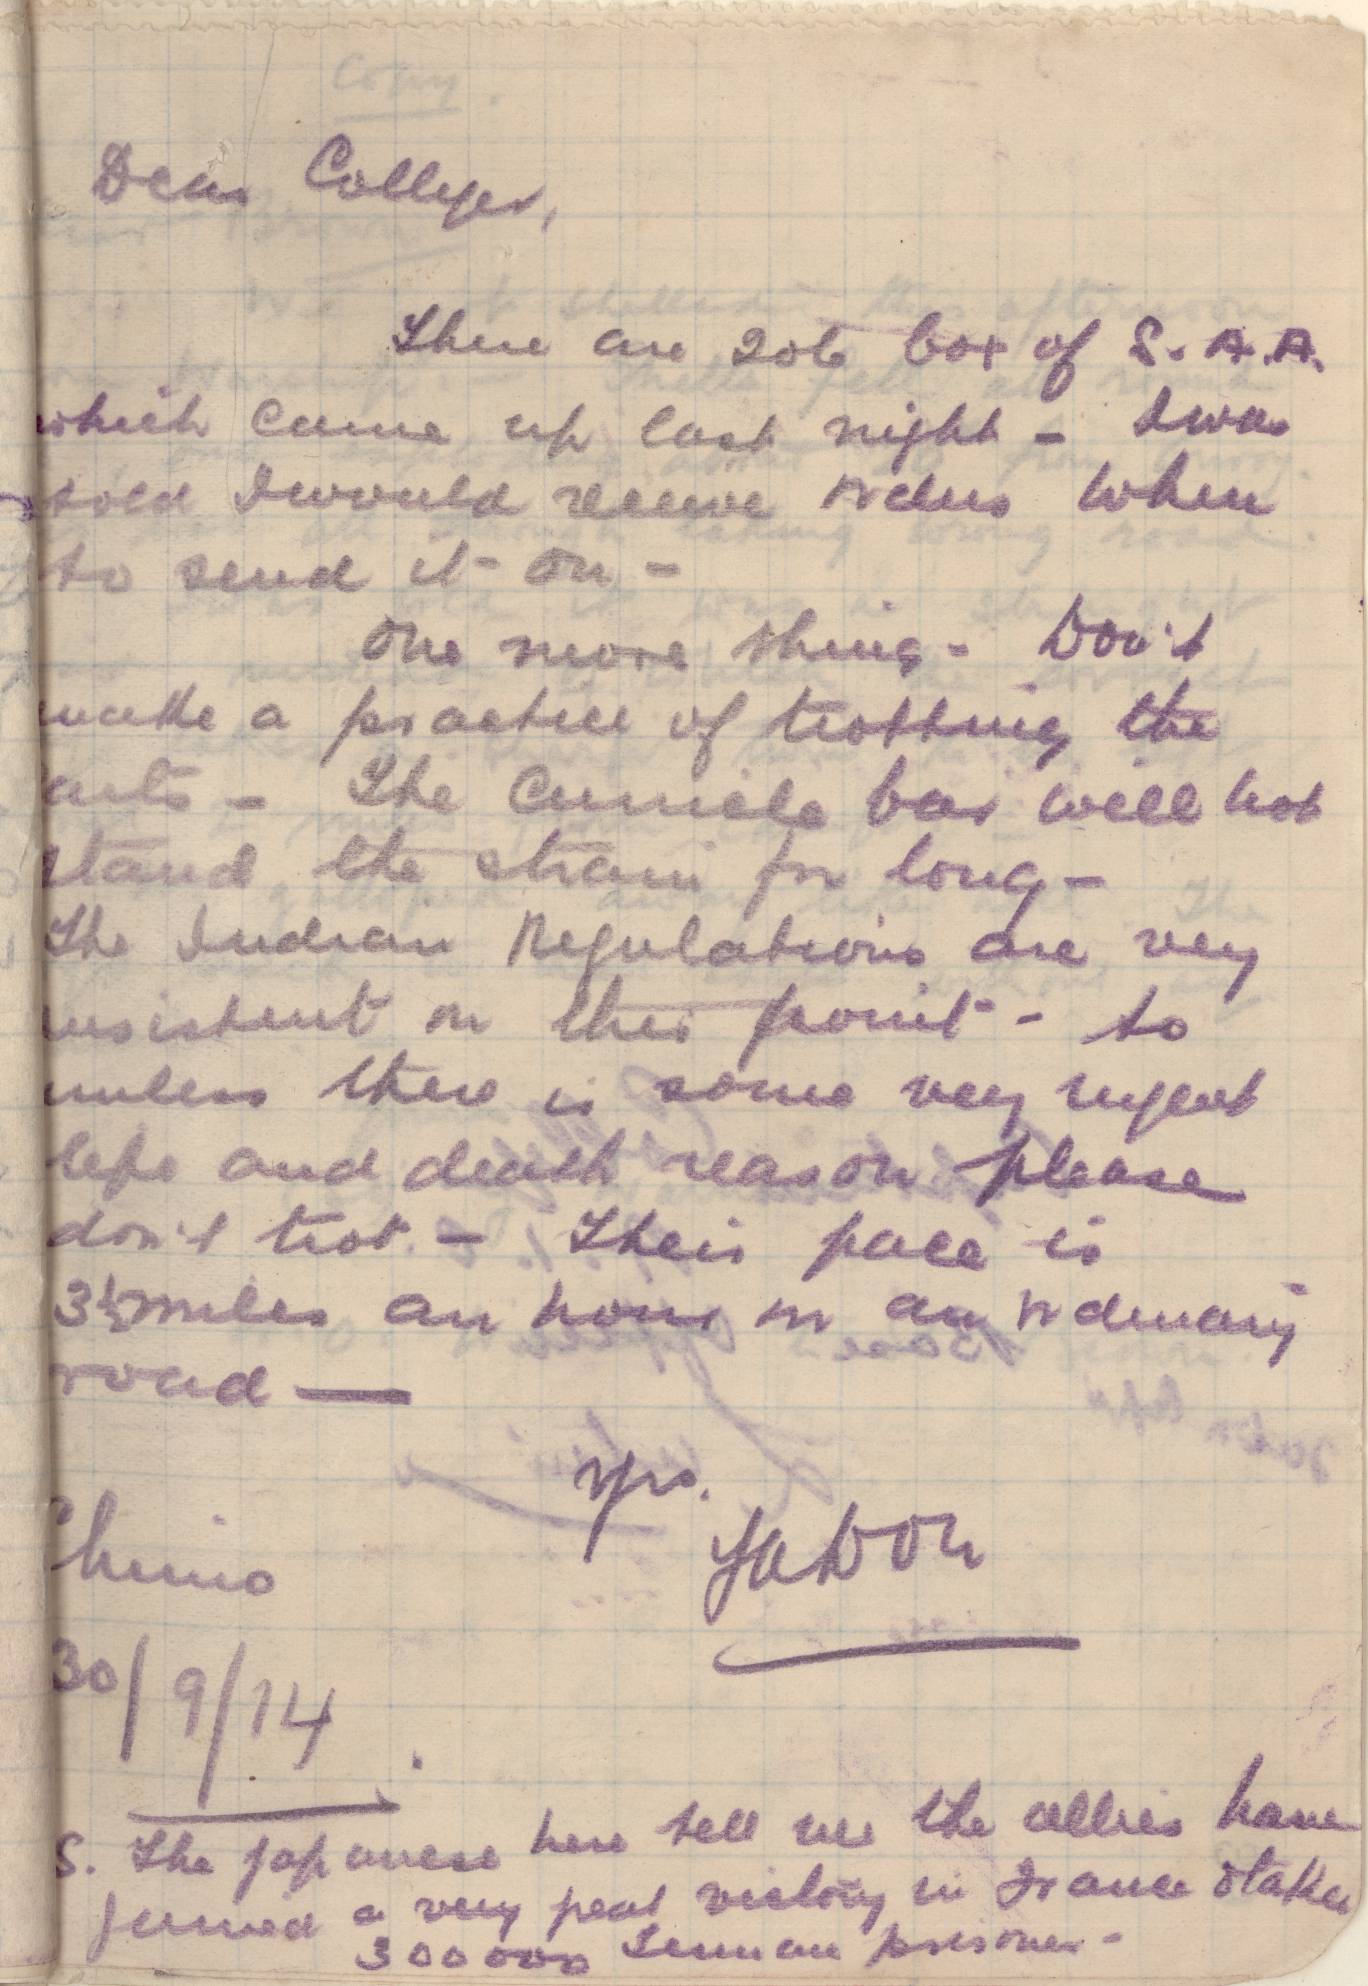 Dear Colleyer,
There are 206 box of S.A.A.
which came up last night - I was
told I would receive orders when
to send it on -
One more thing - Don't
make a practice of trotting the
carts - The curricle bar will not
stand the strain for long -
The Indian Regulations are very
insistent on this point - so
unless there is some very urgent
life and death reason please
don't trot. - Their pace is
3½ miles an hour on an ordinary
road —
Yrs.
Chimo
30/9/14
S. The Japanese here tell me the allies have
gained a very great victory in France & taken
300000 German prisoners -